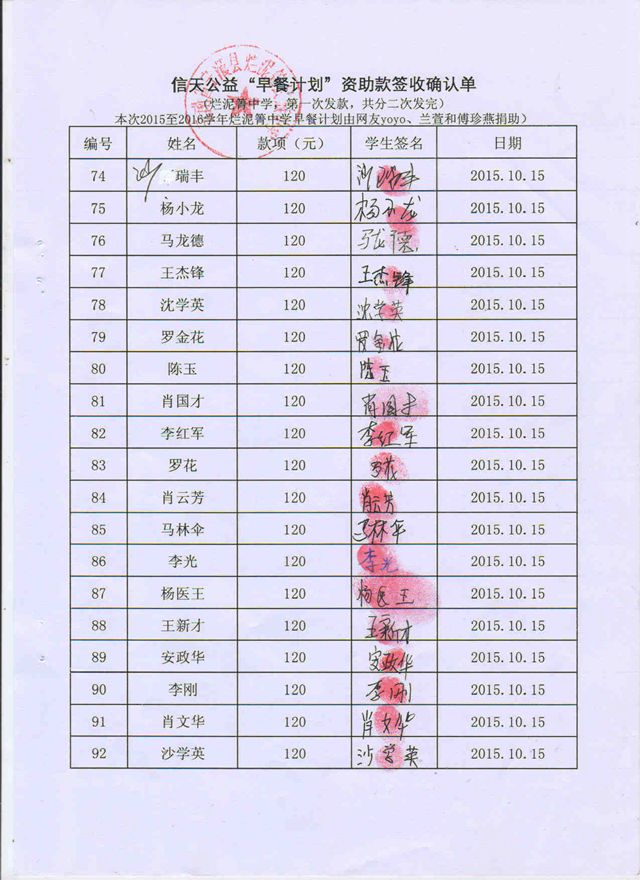 信天公益“早餐计划”资助款签收确认单
（烂泥箐中学，第一次发款，共分二次发完）
本次2015至2016学年烂泥箐中学早餐计划由网友yoyo、兰萱和傅珍燕捐助）
编号 姓名 款项（元） 学生签名 日期
74 沙瑞丰 120 沙瑞丰 2015.10.15
75 杨小龙 120 杨小龙 2015.10.15
76 马龙德 120 马龙德 2015.10.15
77 王杰锋 120 王杰锋 2015.10.15
78 沈学英 120 沈学英 2015.10.15
79 罗金花 120 罗金花 2015.10.15
80 陈玉 120 陈玉 2015.10.15
81 肖国才 120 肖国才 2015.10.15
82 李红军 120 李红军 2015.10.15
83 罗花 120 罗花 2015.10.15
84 肖云芳 120 肖云芳 2015.10.15
85 马林伞 120 马林伞 2015.10.15
86 李光 120 李光 2015.10.15
87 杨医王 120 杨医王 2015.10.15
88 王新才 120 王新才 2015.10.15
89 安政华 120 安政华 2015.10.15
90 李刚 120 李刚 2015.10.15
91 肖文华 120 肖文华 2015.10.15
92 沙学英 120 沙学英 2015.10.15